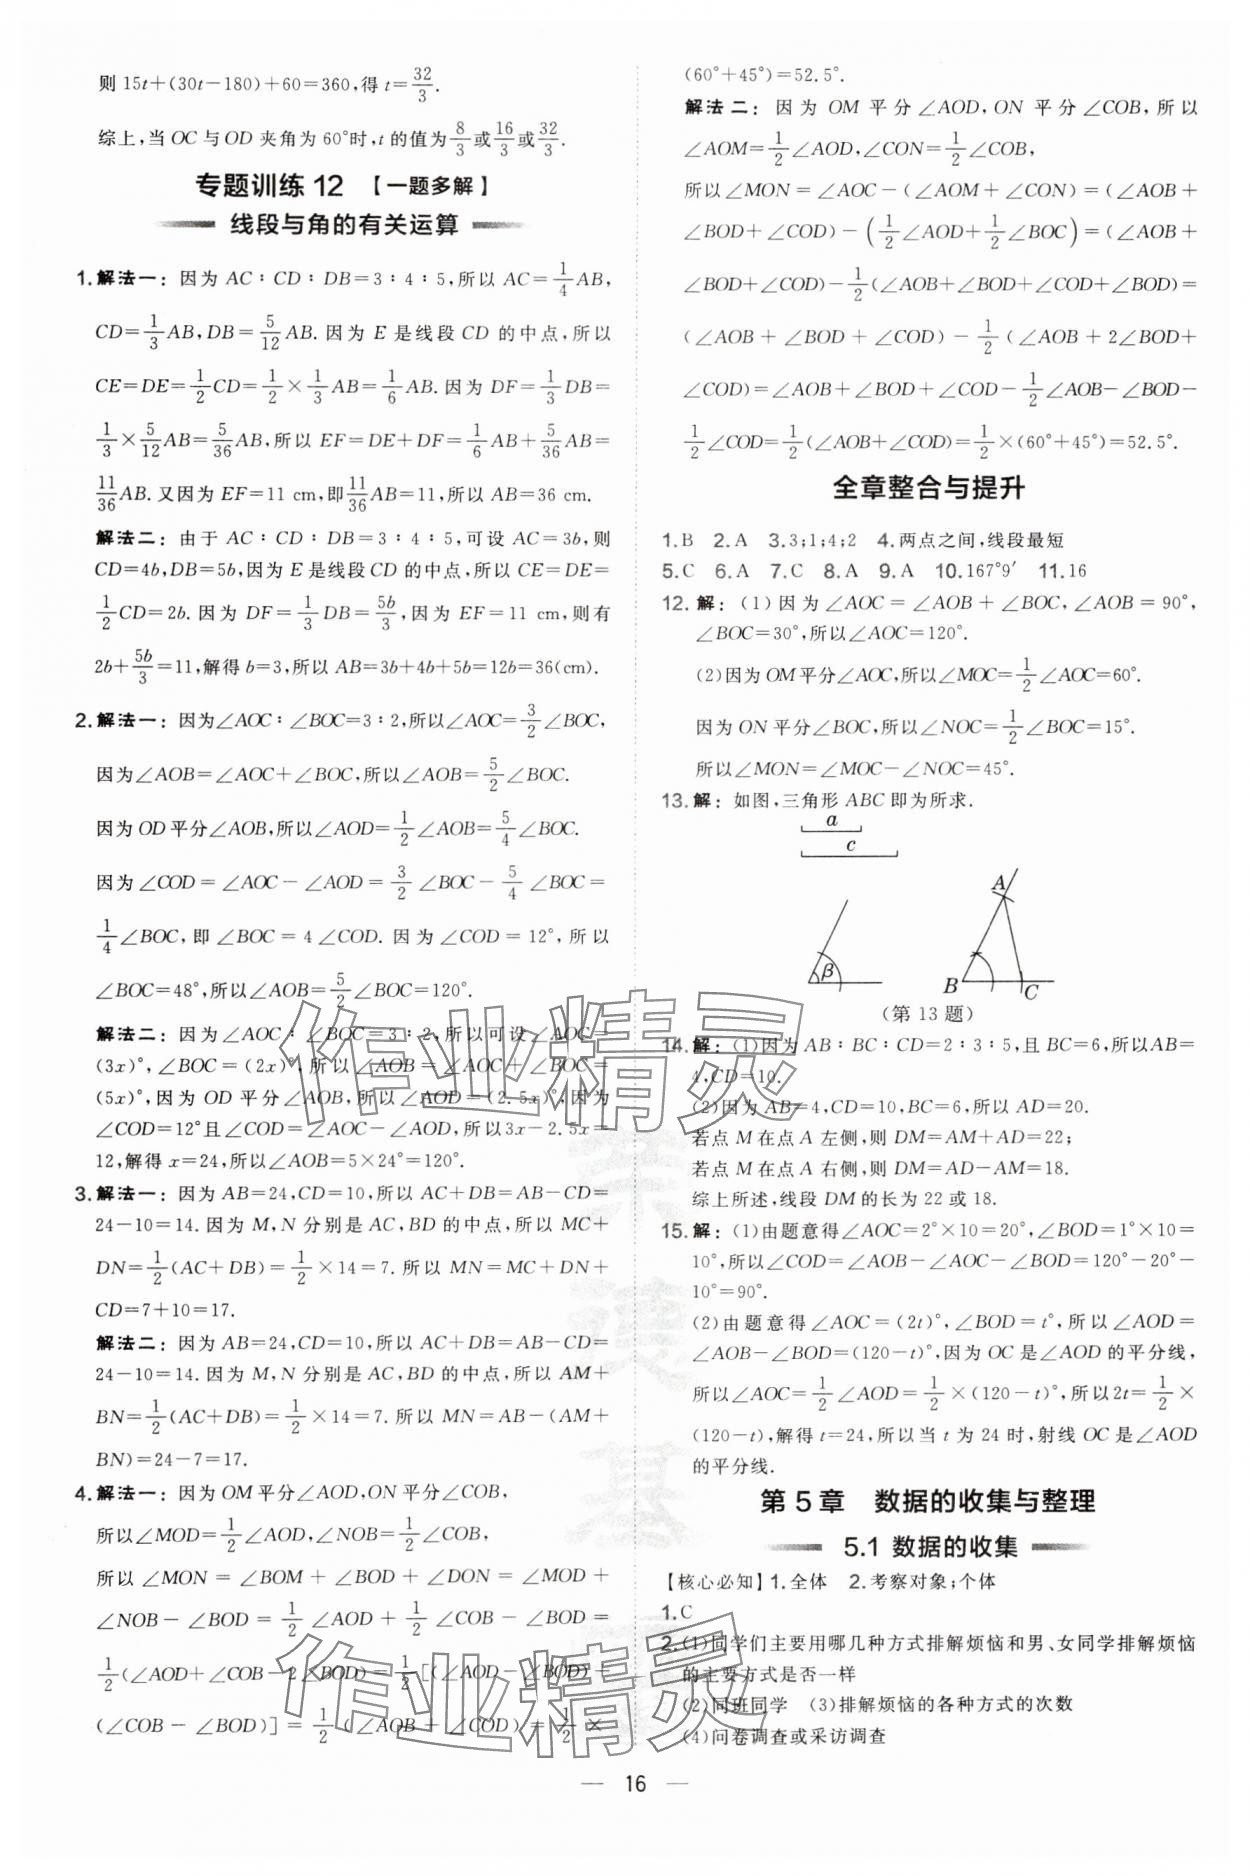 则 15t+(30t-180)+60=360,得 t=32/3.
综上,当 OC 与 OD 夹角为 60°时,t 的值为8/3或16/3或32/3.
专题训练 12 【一题多解】
线段与角的有关运算
1.解法一：因为 AC∶CD∶DB=3∶4∶5,所以 AC=1/4AB,
CD=1/3AB,DB=5/12AB.因为 E 是线段 CD 的中点,所以
CE=DE=1/2CD=1/2×1/3AB=1/6AB.因为 DF=1/3DB=
1/3×5/12AB=5/36AB,所以 EF=DE+DF=1/6AB+5/36AB=
11/36AB.又因为 EF=11 cm,即11/36AB=11,所以 AB=36 cm.
解法二：由于 AC∶CD∶DB=3∶4∶5,可设 AC=3b,则
CD=4b,DB=5b,因为 E 是线段 CD 的中点,所以 CE=DE=
1/2CD=2b.因为 DF=1/3DB=5b/3,因为 EF=11 cm,则有
2b+5b/3=11,解得 b=3,所以 AB=3b+4b+5b=12b=36(cm).
2.解法一：因为∠AOC∶∠BOC=3∶2,所以∠AOC=3/2∠BOC,
因为∠AOB=∠AOC+∠BOC,所以∠AOB=5/2∠BOC.
因为 OD 平分∠AOB,所以∠AOD=1/2∠AOB=5/4∠BOC.
因为∠COD=∠AOC-∠AOD=3/2∠BOC-5/4∠BOC=
1/4∠BOC,即∠BOC=4∠COD.因为∠COD=12°,所以
∠BOC=48°,所以∠AOB=5/2∠BOC=120°.
解法二：因为∠AOC∶∠BOC=3∶2,所以可设∠AOC=
(3x)°,∠BOC=(2x)°,所以∠AOB=∠AOC+∠BOC=
(5x)°,因为 OD 平分∠AOB,所以∠AOD=(2.5x)°,因为
∠COD=12°且∠COD=∠AOC-∠AOD,所以3x-2.5x=
12,解得 x=24,所以∠AOB=5×24°=120°.
3.解法一：因为 AB=24,CD=10,所以 AC+DB=AB-CD=
24-10=14.因为 M,N 分别是 AC,BD 的中点,所以 MC+
DN=1/2(AC+DB)=1/2×14=7.所以 MN=MC+DN+
CD=7+10=17.
解法二：因为 AB=24,CD=10,所以 AC+DB=AB-CD=
24-10=14.因为 M,N 分别是 AC,BD 的中点,所以 AM+
BN=1/2(AC+DB)=1/2×14=7.所以 MN=AB-(AM+
BN)=24-7=17.
4.解法一：因为 OM 平分∠AOD,ON 平分∠COB,
所以∠MOD=1/2∠AOD,∠NOB=1/2∠COB,
所以∠MON=∠BOM+∠BOD+∠DON=∠MOD+
∠NOB-∠BOD=1/2∠AOD+1/2∠COB-∠BOD=
1/2(∠AOD+∠COB-2∠BOD)=1/2[(∠AOD-∠BOD)+
(∠COB-∠BOD)]=1/2(∠AOB+∠COD)=1/2×
(60°+45°)=52.5°.
解法二：因为 OM 平分∠AOD,ON 平分∠COB,所以
∠AOM=1/2∠AOD,∠CON=1/2∠COB,
所以∠MON=∠AOC-(∠AOM+∠CON)=(∠AOB+
∠BOD+∠COD)-(1/2∠AOD+1/2∠BOC)=(∠AOB+
∠BOD+∠COD)-1/2(∠AOB+∠BOD+∠COD+∠BOD)=
(∠AOB+∠BOD+∠COD)-1/2(∠AOB+2∠BOD+
∠COD)=∠AOB+∠BOD+∠COD-1/2∠AOB-∠BOD-
1/2∠COD=1/2(∠AOB+∠COD)=1/2×(60°+45°)=52.5°.
全章整合与提升
1.B 2.A 3.3;1;4;2 4.两点之间,线段最短
5.C 6.A 7.C 8.A 9.A 10.167°9′ 11.16
12.解：(1)因为∠AOC=∠AOB+∠BOC,∠AOB=90°,
∠BOC=30°,所以∠AOC=120°.
(2)因为 OM 平分∠AOC,所以∠MOC=1/2∠AOC=60°.
因为 ON 平分∠BOC,所以∠NOC=1/2∠BOC=15°.
所以∠MON=∠MOC-∠NOC=45°.
13.解：如图,三角形 ABC 即为所求.
a
c
A
β
B
C
(第 13 题)
14.解：(1)因为 AB∶BC∶CD=2∶3∶5,且 BC=6,所以AB=
4,CD=10.
(2)因为 AB=4,CD=10,BC=6,所以 AD=20.
若点 M 在点 A 左侧,则 DM=AM+AD=22;
若点 M 在点 A 右侧,则 DM=AD-AM=18.
综上所述,线段 DM 的长为 22 或 18.
15.解：(1)由题意得∠AOC=2°×10=20°,∠BOD=1°×10=
10°,所以∠COD=∠AOB-∠AOC-∠BOD=120°-20°-
10°=90°.
(2)由题意得∠AOC=(2t)°,∠BOD=t°,所以∠AOD=
∠AOB-∠BOD=(120-t)°,因为 OC 是∠AOD 的平分线,
所以∠AOC=1/2∠AOD=1/2×(120-t)°,所以2t=1/2×
(120-t),解得 t=24,所以当 t 为 24 时,射线 OC 是∠AOD
的平分线.
第 5 章 数据的收集与整理
5.1 数据的收集
【核心必知】1.全体 2.考察对象;个体
1.C
2.(1)同学们主要用哪几种方式排解烦恼和男、女同学排解烦恼
的主要方式是否一样
(2)同班同学 (3)排解烦恼的各种方式的次数
(4)问卷调查或采访调查
— 16 —
作业精灵
作业精灵